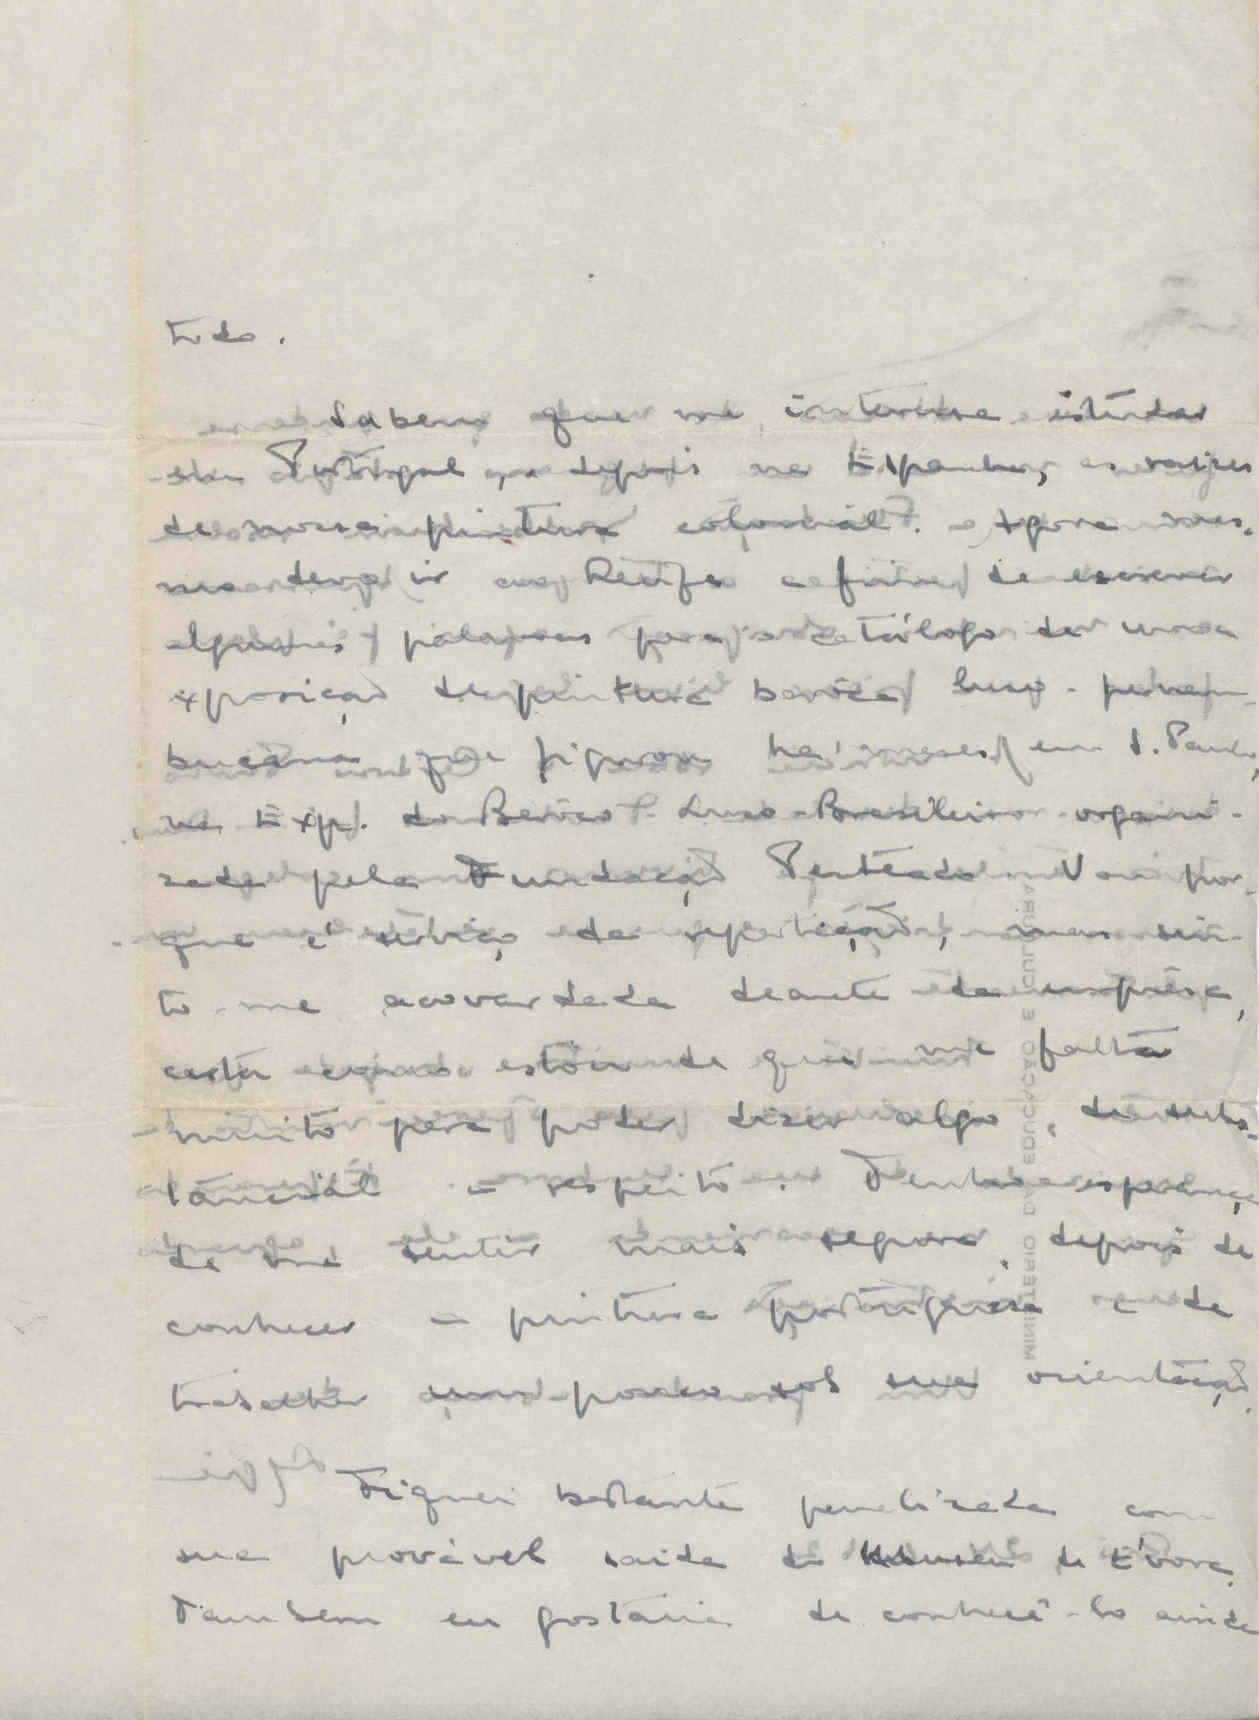 tudo.
Sabem que me interessa estudar
em Portugal, e depois na Espanha, as raizes
de nossa pintura colonial. Agora mes-
mo devo ir ao Recife a fim de escrever
algumas palavras para o catálogo de uma
exposição de pintura barroca luso-pernam-
bucana que figurou há meses em S. Paulo,
na Exp. do Barroco Luso-Brasileiro organi-
zada pela Fundação Penteado. Vou por-
que é serviço da repartição, mas sin-
to-me acovardada deante da emprêsa,
certa como estou de que me falta
muito para poder dizer algo de subs-
tancial a respeito. Tenho esperança
de me sentir mais segura depois de
conhecer a pintura portuguesa e de
trabalhar um pouco sob sua orientação.
Fiquei bastante penalizada com
sua provável saida do Museu de Évora.
Tambem eu gostaria de conhecê-lo ainda
MINISTÉRIO DA EDUCAÇÃO E CULTURA